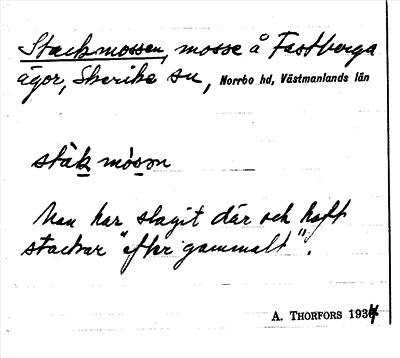 Stackmossen, mosse å Fastberga
ägor, Skerike sn, Norrbo hd, Västmanlands län
stàk mòson
Man har slagit där och haft
stackar "efter gammalt".
A. THORFORS 1934